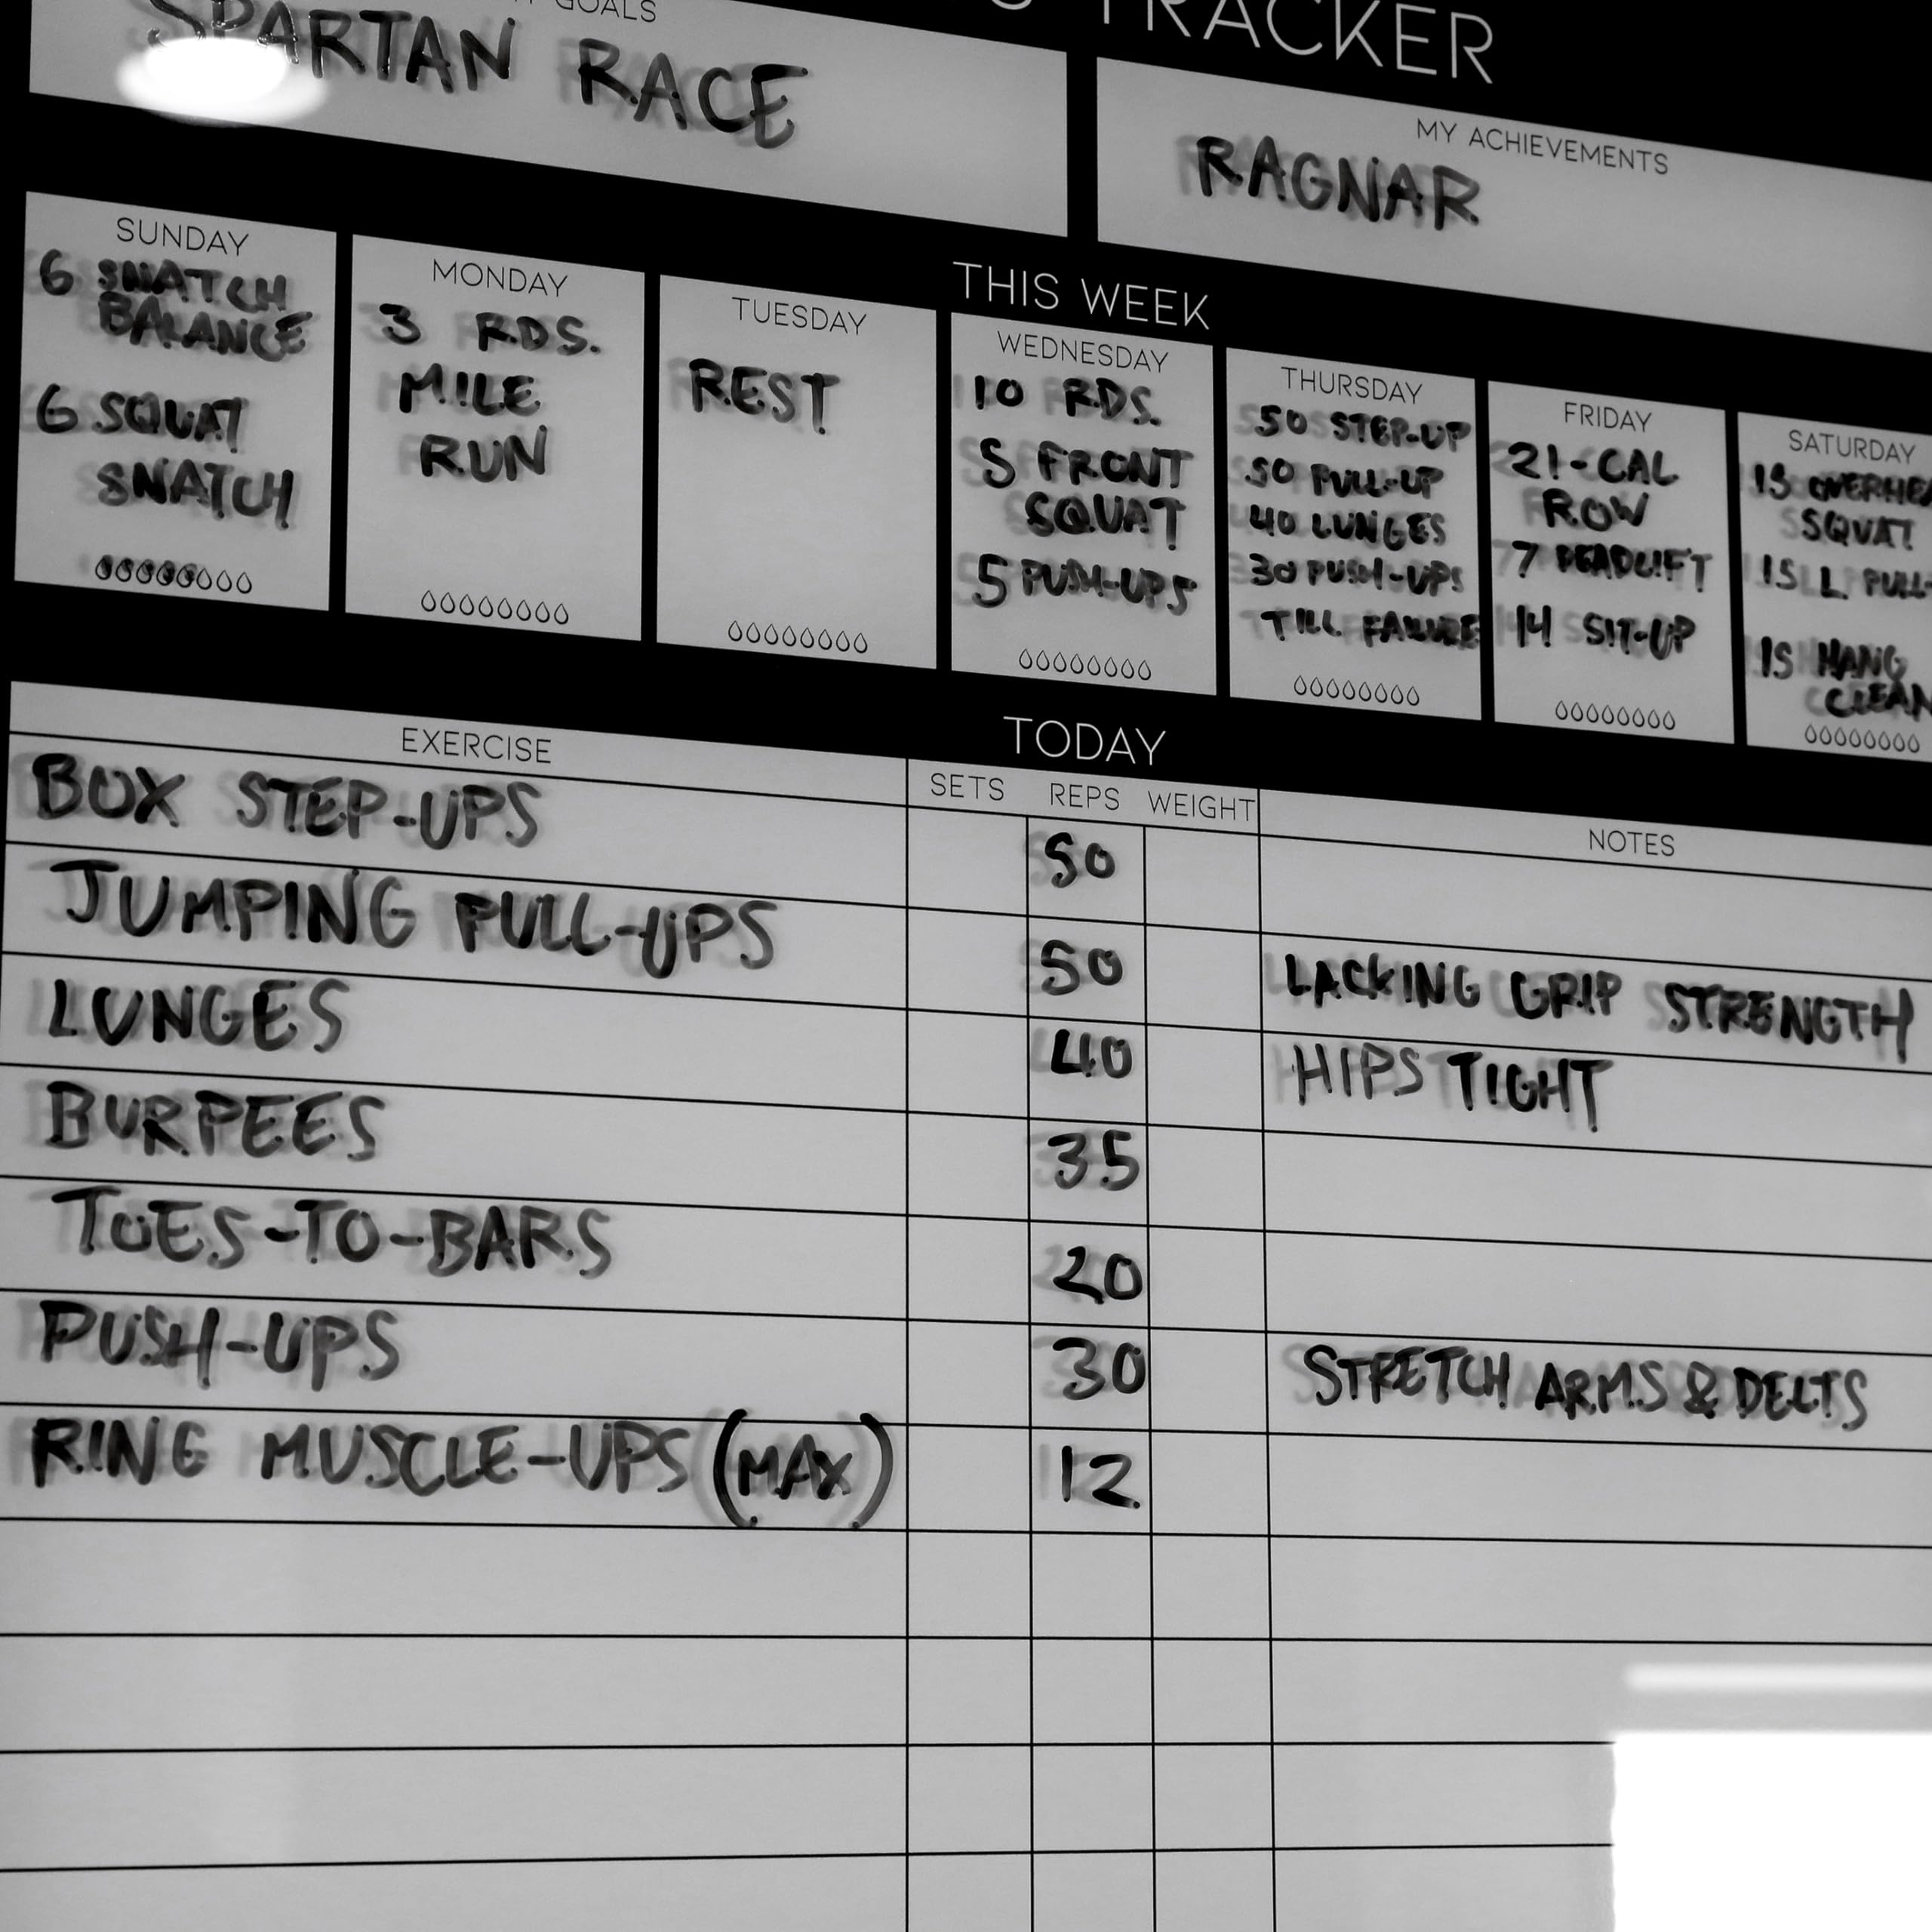 GOALS
TRACKER
SPARTAN RACE
MY ACHIEVEMENTS
RAGNAR
THIS WEEK
SUNDAY
6 SNATCH
BALANCE
6 SQUAT
SNATCH
MONDAY
3 RDS.
MILE
RUN
TUESDAY
REST
WEDNESDAY
10 RDS.
5 FRONT
SQUAT
5 PUSH-UPS
THURSDAY
50 STEP-UP
50 PULL-UP
40 LUNGES
30 PUSH-UPS
TILL FAILURE
FRIDAY
21-CAL
ROW
7 DEADLIFT
14 SIT-UP
SATURDAY
15
SQUAT
15 L. PULL-
15 HANG
CLEAN
TODAY
EXERCISE SETS REPS WEIGHT NOTES
BOX STEP-UPS 50
JUMPING PULL-UPS 50 LACKING GRIP STRENGTH
LUNGES 40 HIPS TIGHT
BURPEES 35
TOES-TO-BARS 20
PUSH-UPS 30 STRETCH ARMS & DELTS
RING MUSCLE-UPS (MAX) 12